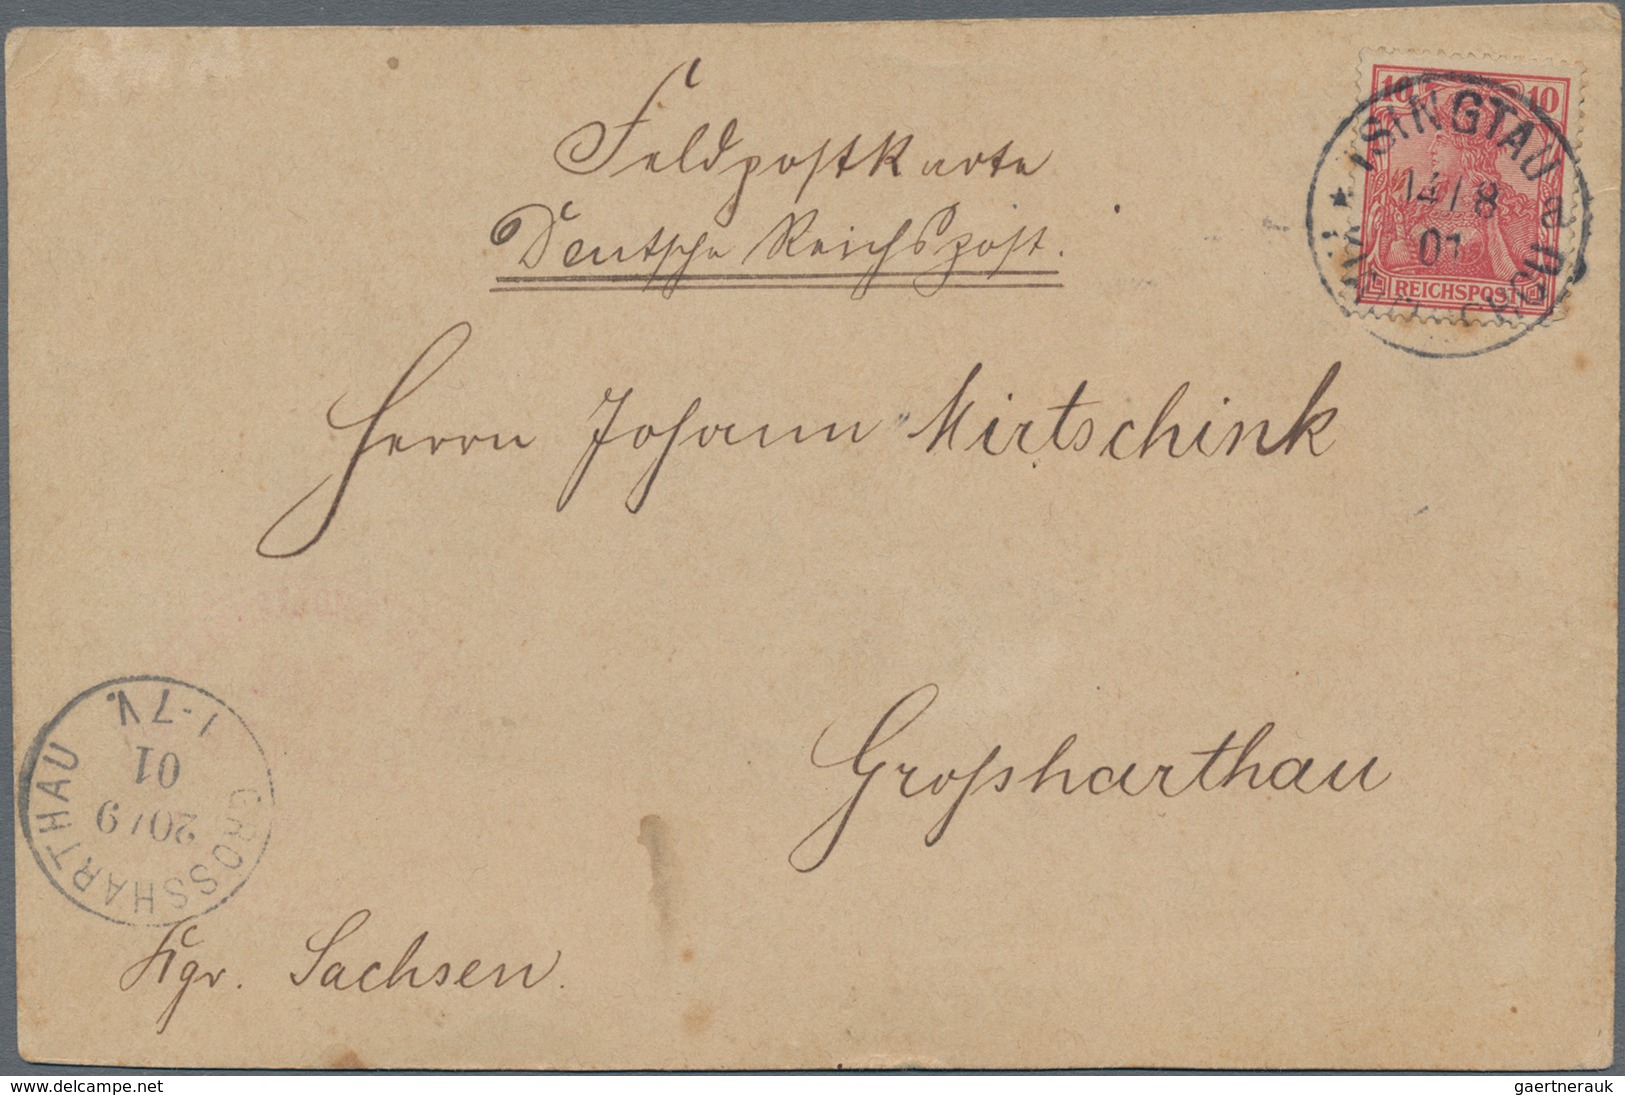 Feldpostkarte
Deutsche Reichspost.
10 10
REICHSPOST
TSINGTAU
14/8
01
a
KIAUTSCHOU
Herrn Johann Mirtschink
Großharthau
GROSSHARTHAU
20/9
01
1-7N.
Kgr. Sachsen.
www.delcampe.net
gaertnerauk